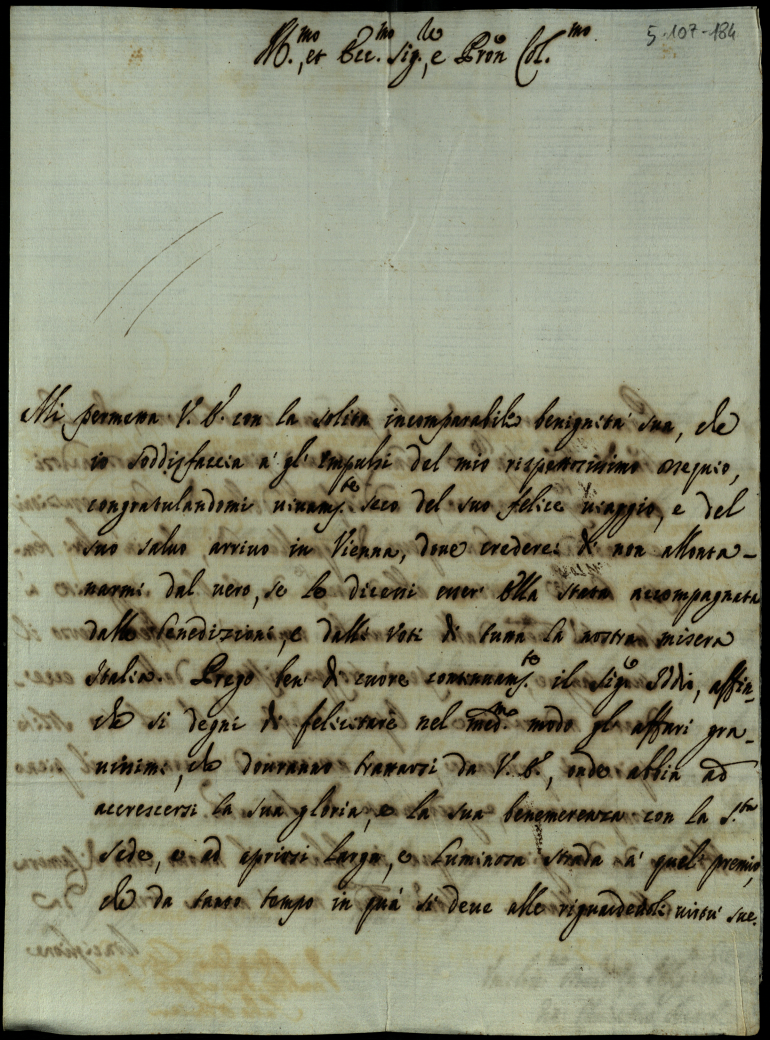 Ill.mo, et Ecc.mo Sig.re, e Pron Col.mo
5-107-184
Mi permetta V. E. con la solita incomparabile benignità sua, che
io soddisfaccia a' gl' impulsi del mio rispettosissimo ossequio,
congratulandomi vivam.te seco del suo felice viaggio, e del
suo salvo arrivo in Vienna, dove crederei di non allonta-
narmi dal vero, se Le dicessi esser' Ella stata accompagnata
dalle benedizioni, e dalli voti di tutta la nostra misera
Italia. Prego ben' di cuore continuam.te il Sig.e Iddio, affin-
che si degni di felicitare nel med.mo modo gl' affari gra-
vissimi, che dovranno trattarsi da V. E., onde abbia ad
accrescersi la sua gloria, e la sua benemerenza con la S.ta
Sede, e ad aprirsi larga, e luminosa strada a' quel premio,
che da tanto tempo in quà si deve alle riguardevoli virtù sue.